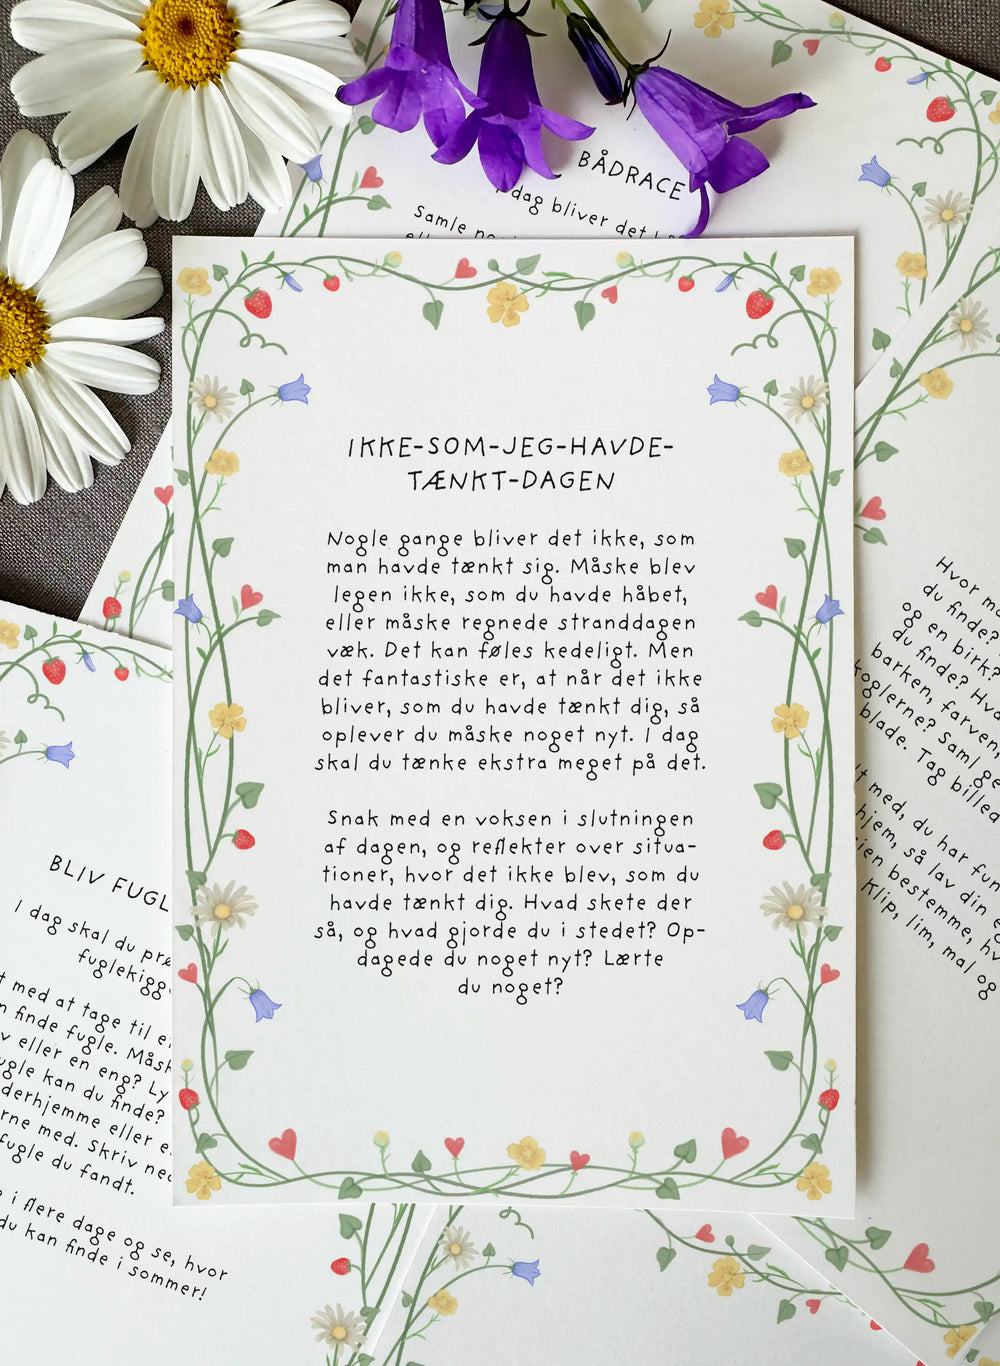 BÅDRACE
dag bliver det
Samle
IKKE-SOM-JEG-HAVDE-
TÆNKT-DAGEN
Nogle gange bliver det ikke, som
man havde tænkt sig. Måske blev
legen ikke, som du havde håbet,
eller måske regnede stranddagen
væk. Det kan føles kedeligt. Men
det fantastiske er, at når det ikke
bliver, som du havde tænkt dig, så
oplever du måske noget nyt. I dag
skal du tænke ekstra meget på det.
Snak med en voksen i slutningen
af dagen, og reflekter over situa-
tioner, hvor det ikke blev, som du
havde tænkt dig. Hvad skete der
så, og hvad gjorde du i stedet? Op-
dagede du noget nyt? Lærte
du noget?
BLIV FUGL
I dag skal du
fuglekigg
med at tage til
finde fugle. Måsk
eller en eng? Ly
kan du finde?
derhjemme eller
med. Skriv ned
fugle du fandt.
i flere dage og se, hvor
du kan finde i sommer!
Hvor
du finde?
og en birk?
du finde?
barken, farven,
koglerne? Saml
blade. Tag
med, du har
hjem, så lav din
bestemme,
Klip, lim, mal og